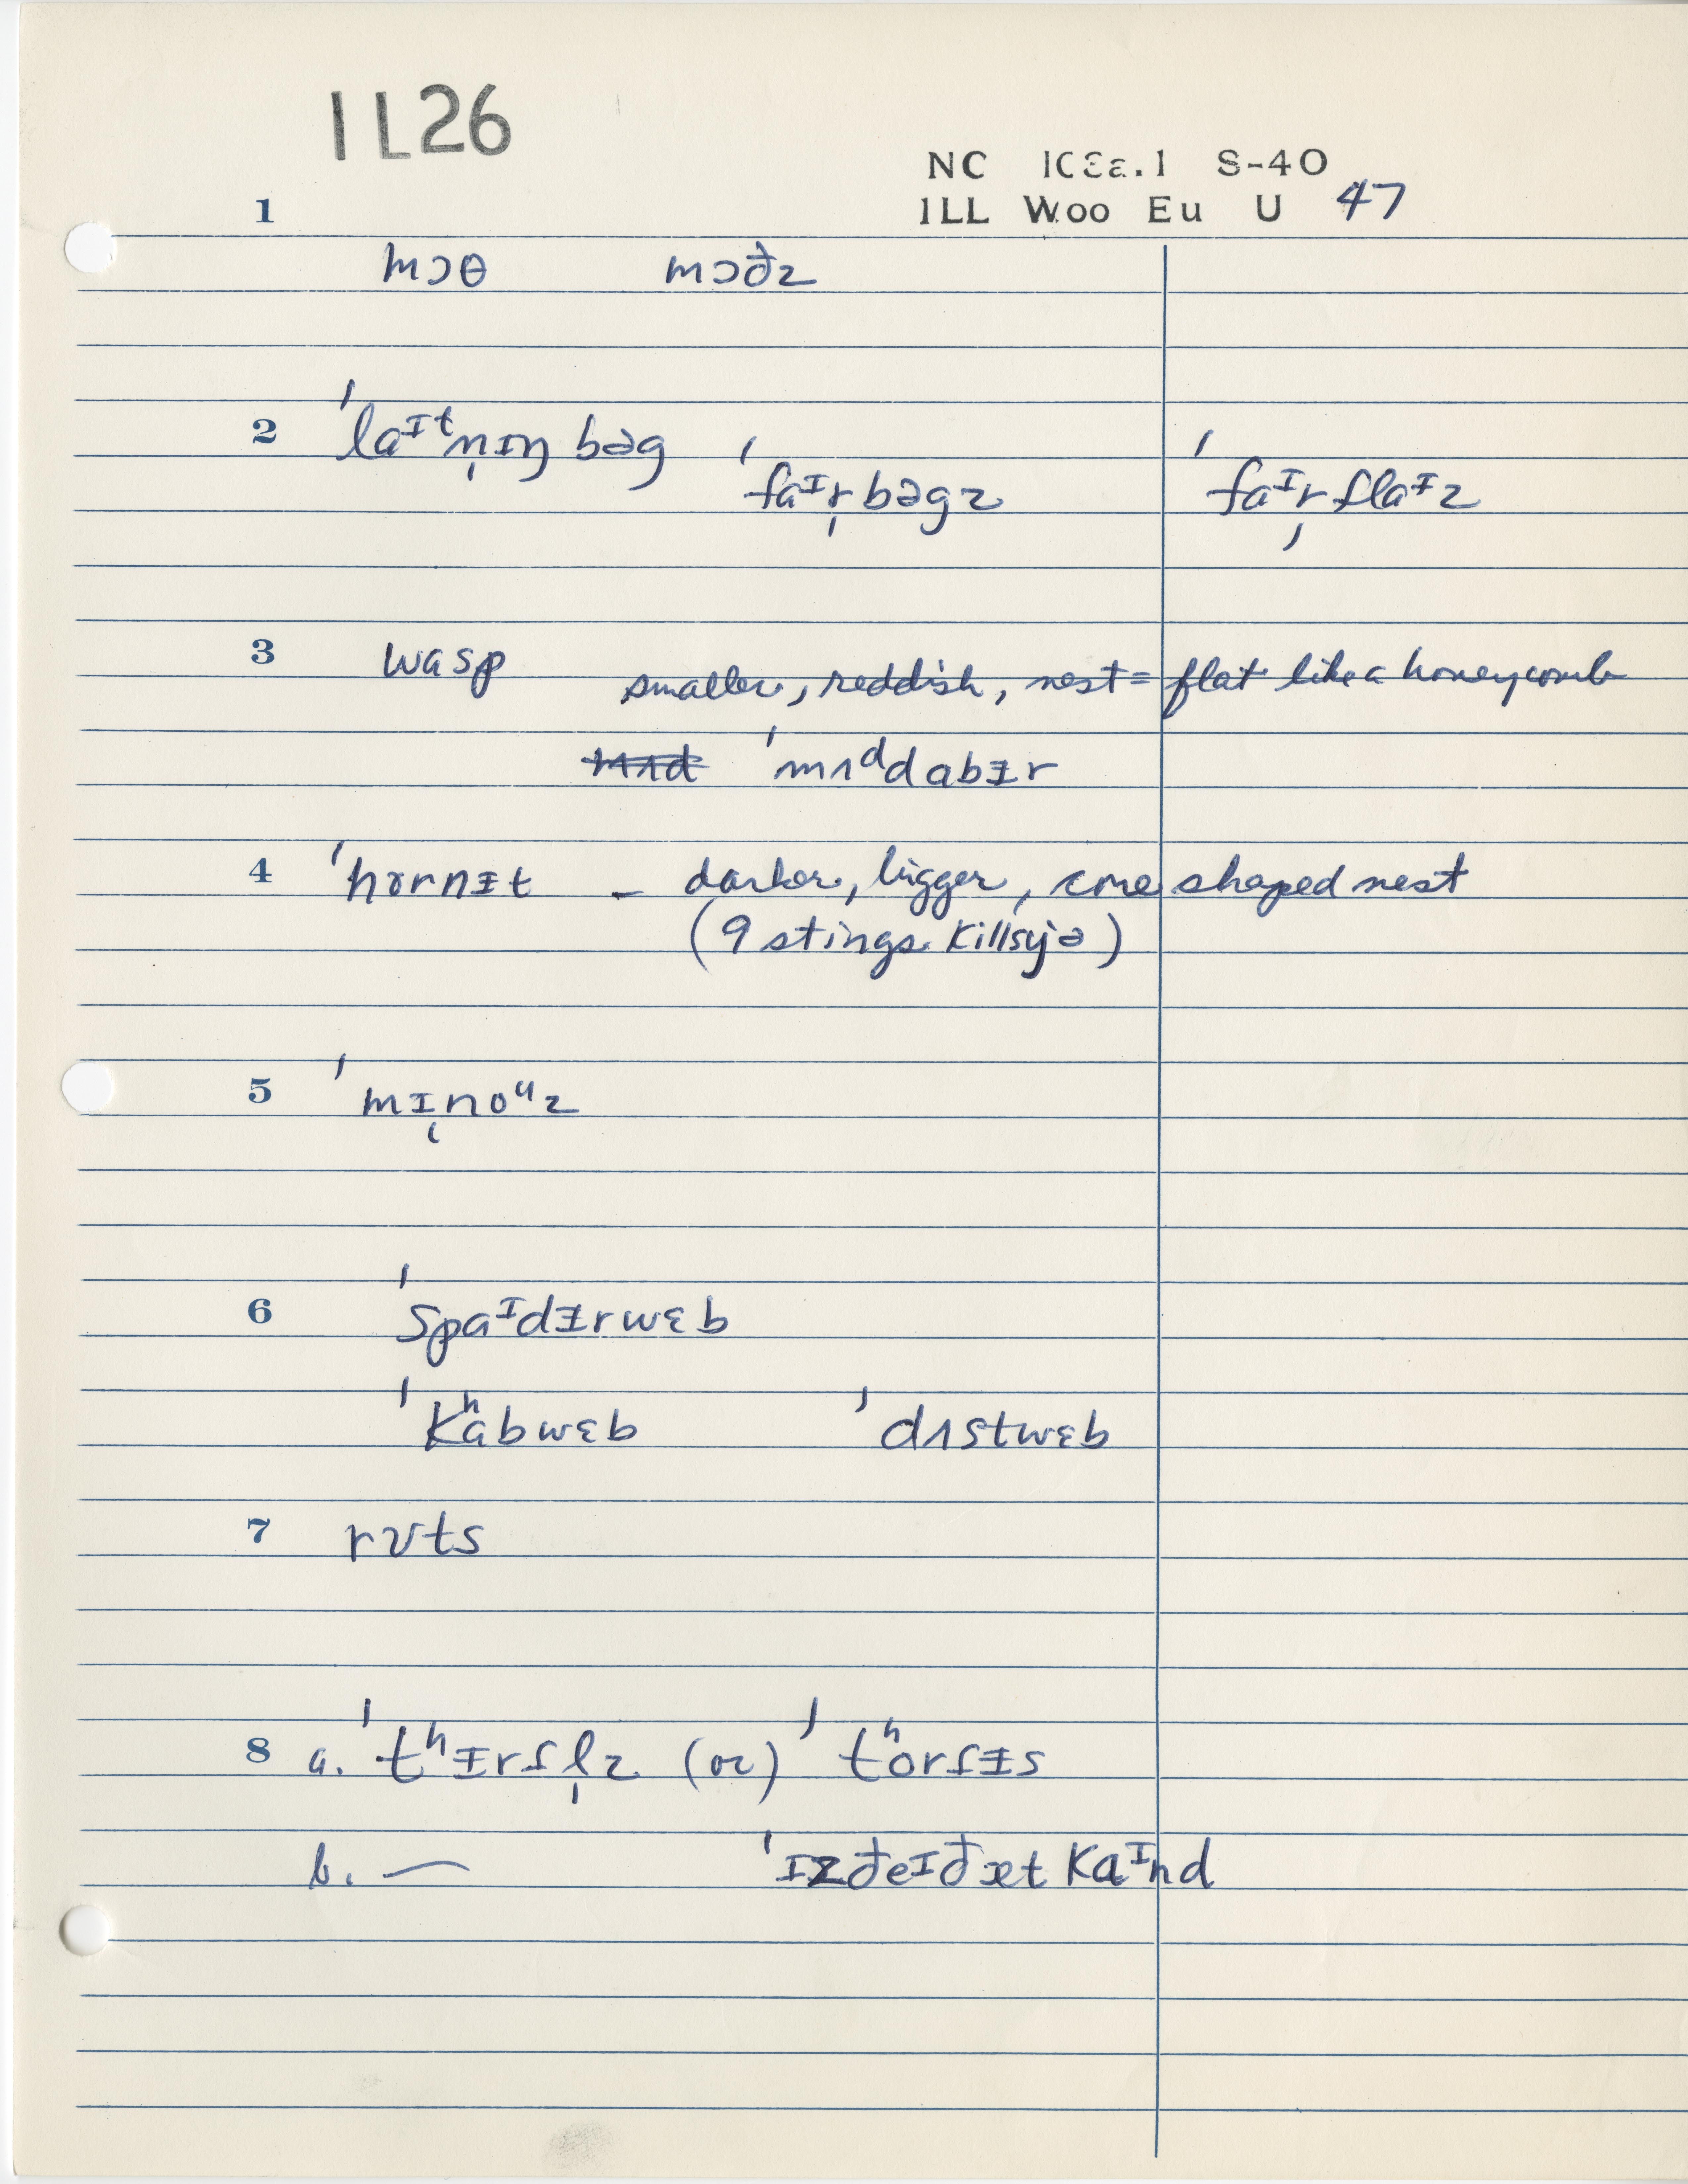 1L26
NC 1CƐa.1 S-40
1LL Woo Eu U 47
1
mɔθ mɔðz
2 ˈlaᴵᵗn̩ɪŋ bəg ˈfaᴵr̩bəgz ˈfaᴵr̩flaᴵz
3 wasp smaller, reddish, nest = flat like a honeycomb
mʌd ˈmʌᵈdabɪ̵r
4 ˈhɔrnɪ̵t – darker, bigger, cone shaped nest
(9 stings killsyə)
5 ˈmɪ̨noᵘz
6 ˈspaᴵdɪ̵rwɛb
ˈkʰabwɛb ˈdʌstwɛb
7 rʊts
8 a. ˈtʰɪ̵rʃl̩z (or) ˈtʰorʃɪ̵s
b. — ˈɪzðeɪðæt kaᴵnd